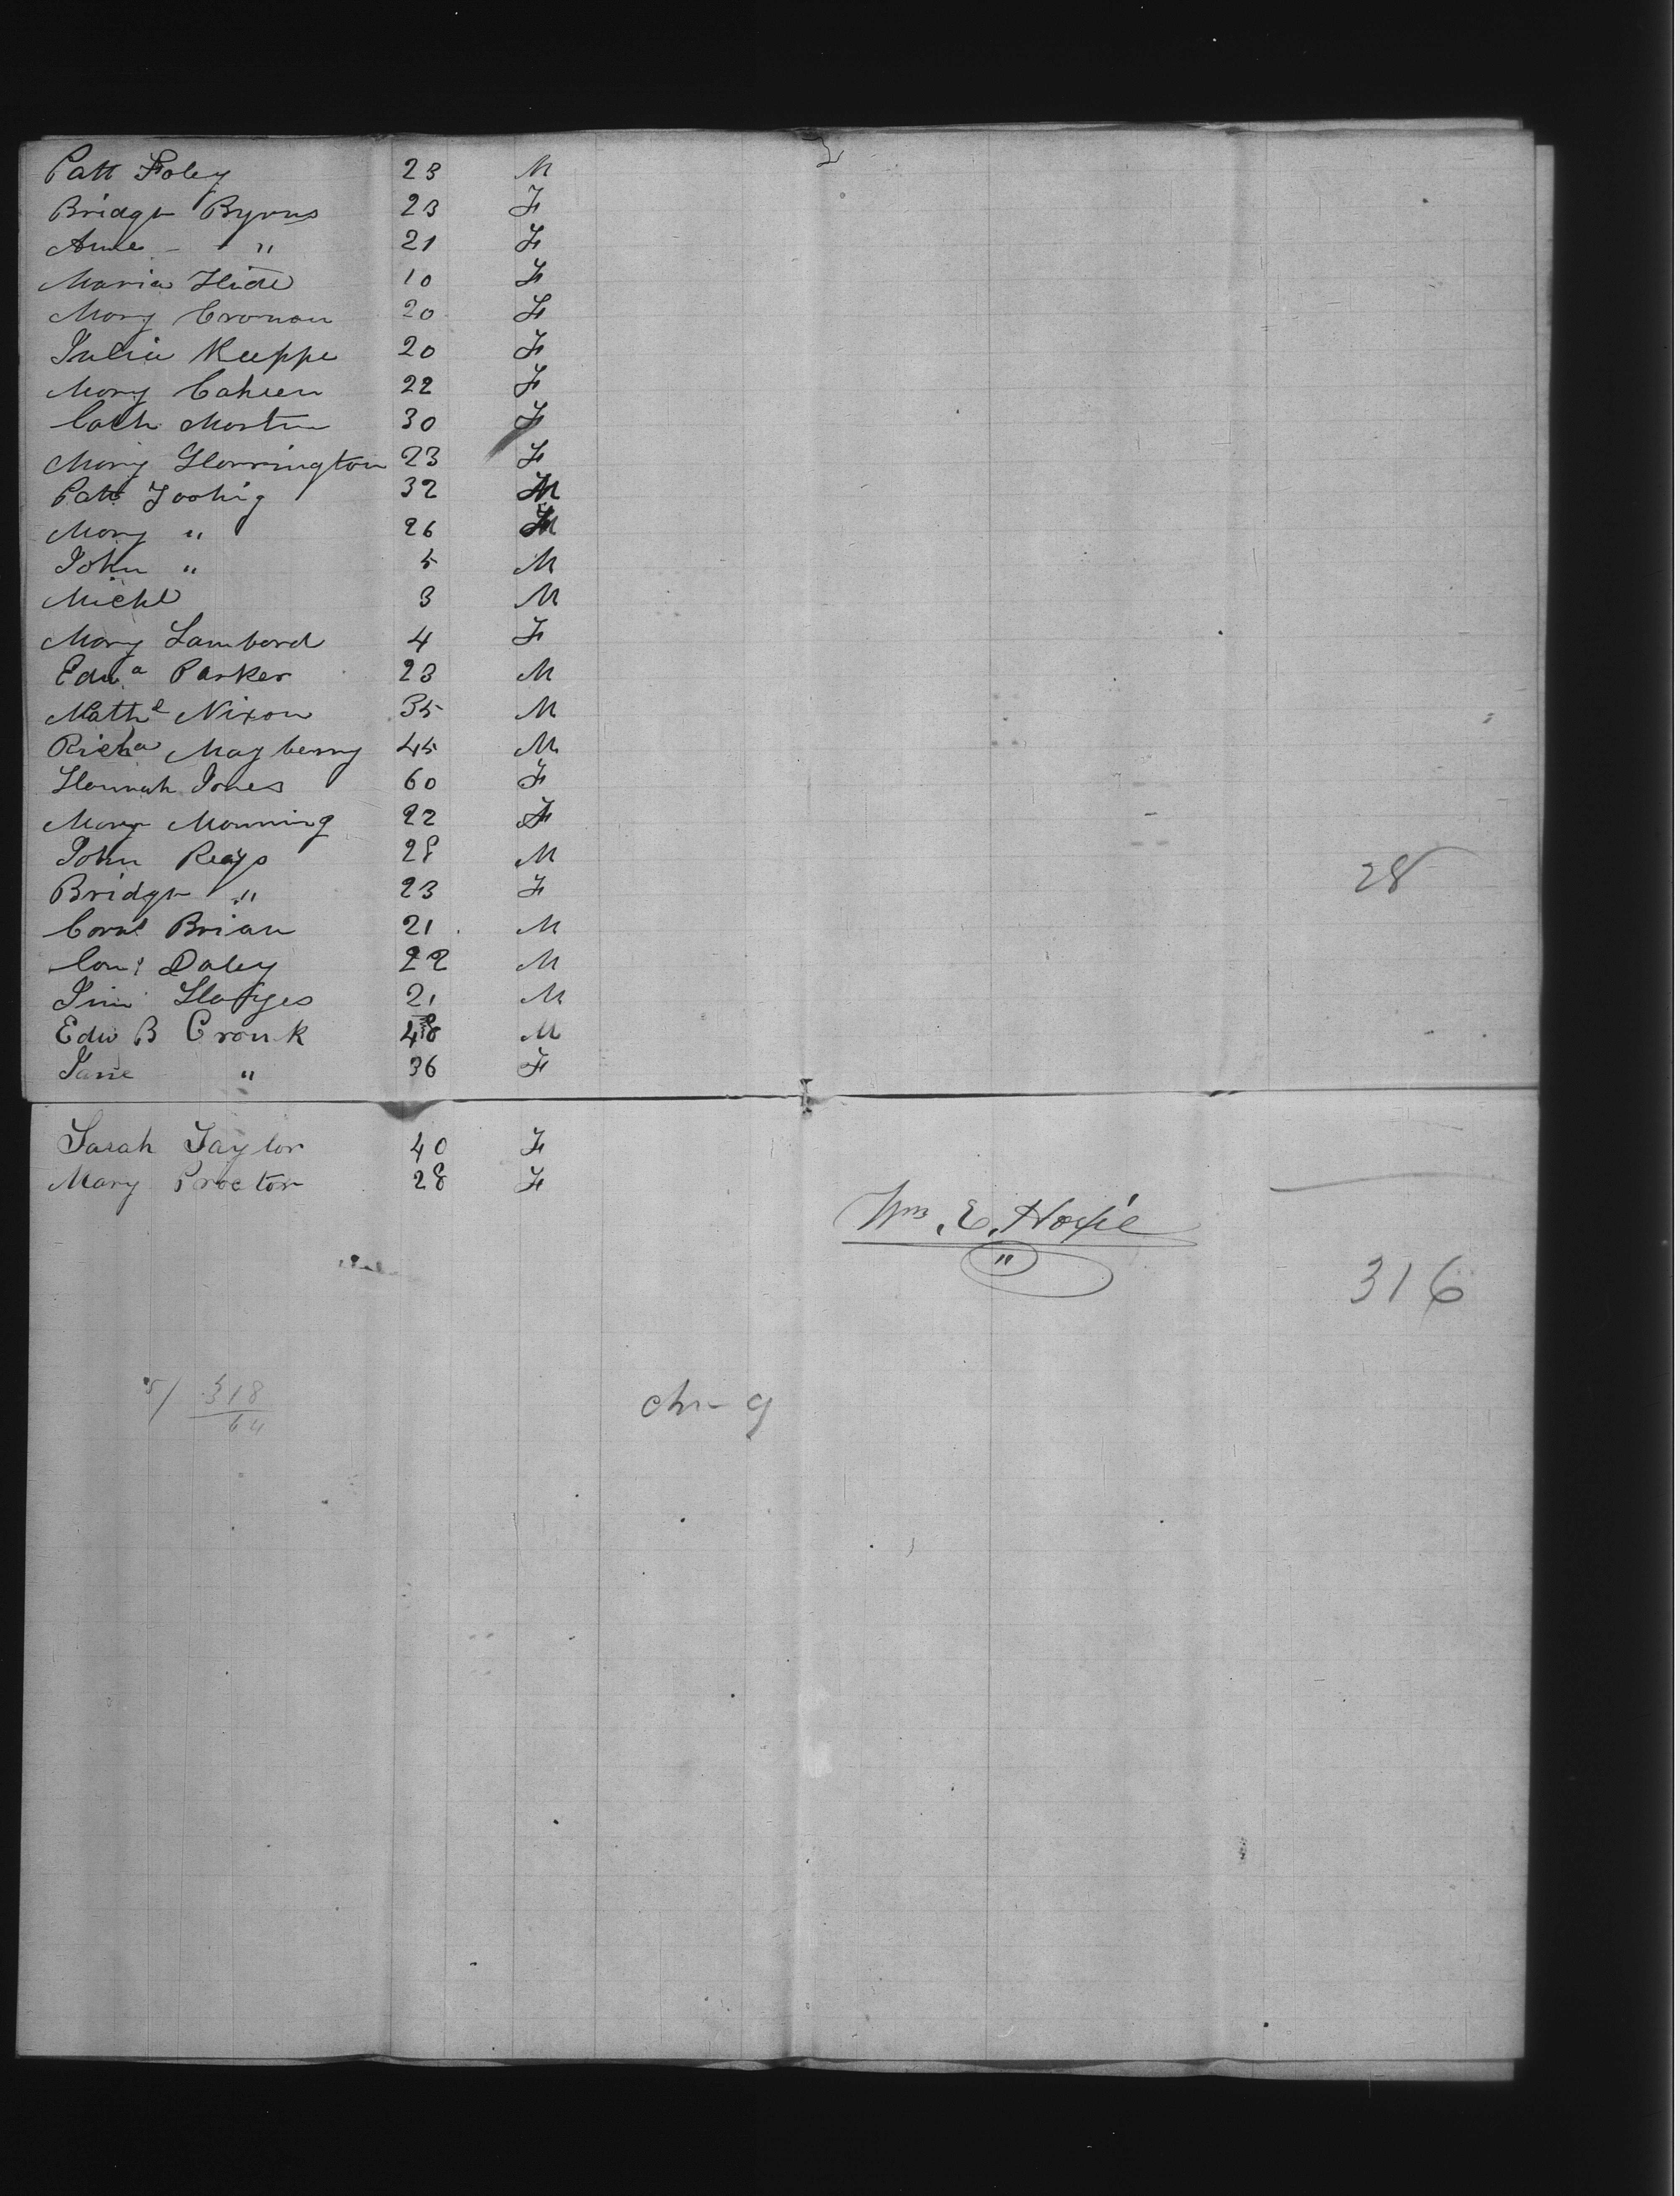 Patt Foley 23 M
Bridgt Byrns 23 F
Anne - " 21 F
Maria Hide 10 F
Mary Cronan 20 F
Julia Keeppe 20 F
Mary Cahien 22 F
Cath Martin 30 F
Mary Harrington 23 F
Patt Toohig 32 M
Mary " 26 F
John " 5 M
Michl 3 M
Mary Lambard 4 F
Edwd Parker 23 M
Nathl Nixon 35 M
Richd Mayberry 45 M
Hannah Jones 60 F
Mary Manning 22 F
John Reays 28 M
28
Bridgt " 23 F
Cornl Brian 21 M
Corn Daley 22 M
Jim Hayes 21 M
Edw B Cronk 48 M
Jane " 36 F
Sarah Taylor 40 F
Mary Proctor 28 F
Wm. E. Hoxie
"
316
5/ 318
64